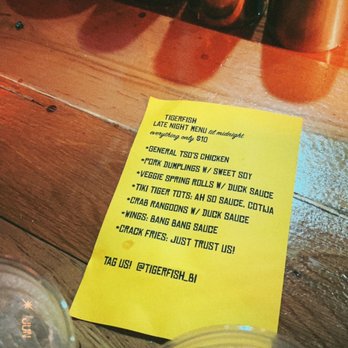 TIGERFISH
LATE NIGHT MENU til midnight
everything only $10
•GENERAL TSO'S CHICKEN
•PORK DUMPLINGS W/ SWEET SOY
•VEGGIE SPRING ROLLS W/ DUCK SAUCE
•TIKI TIGER TOTS: AH SO SAUCE, COTIJA
•CRAB RANGOONS W/ DUCK SAUCE
•WINGS: BANG BANG SAUCE
•CRACK FRIES: JUST TRUST US!
TAG US! @TIGERFISH_BI